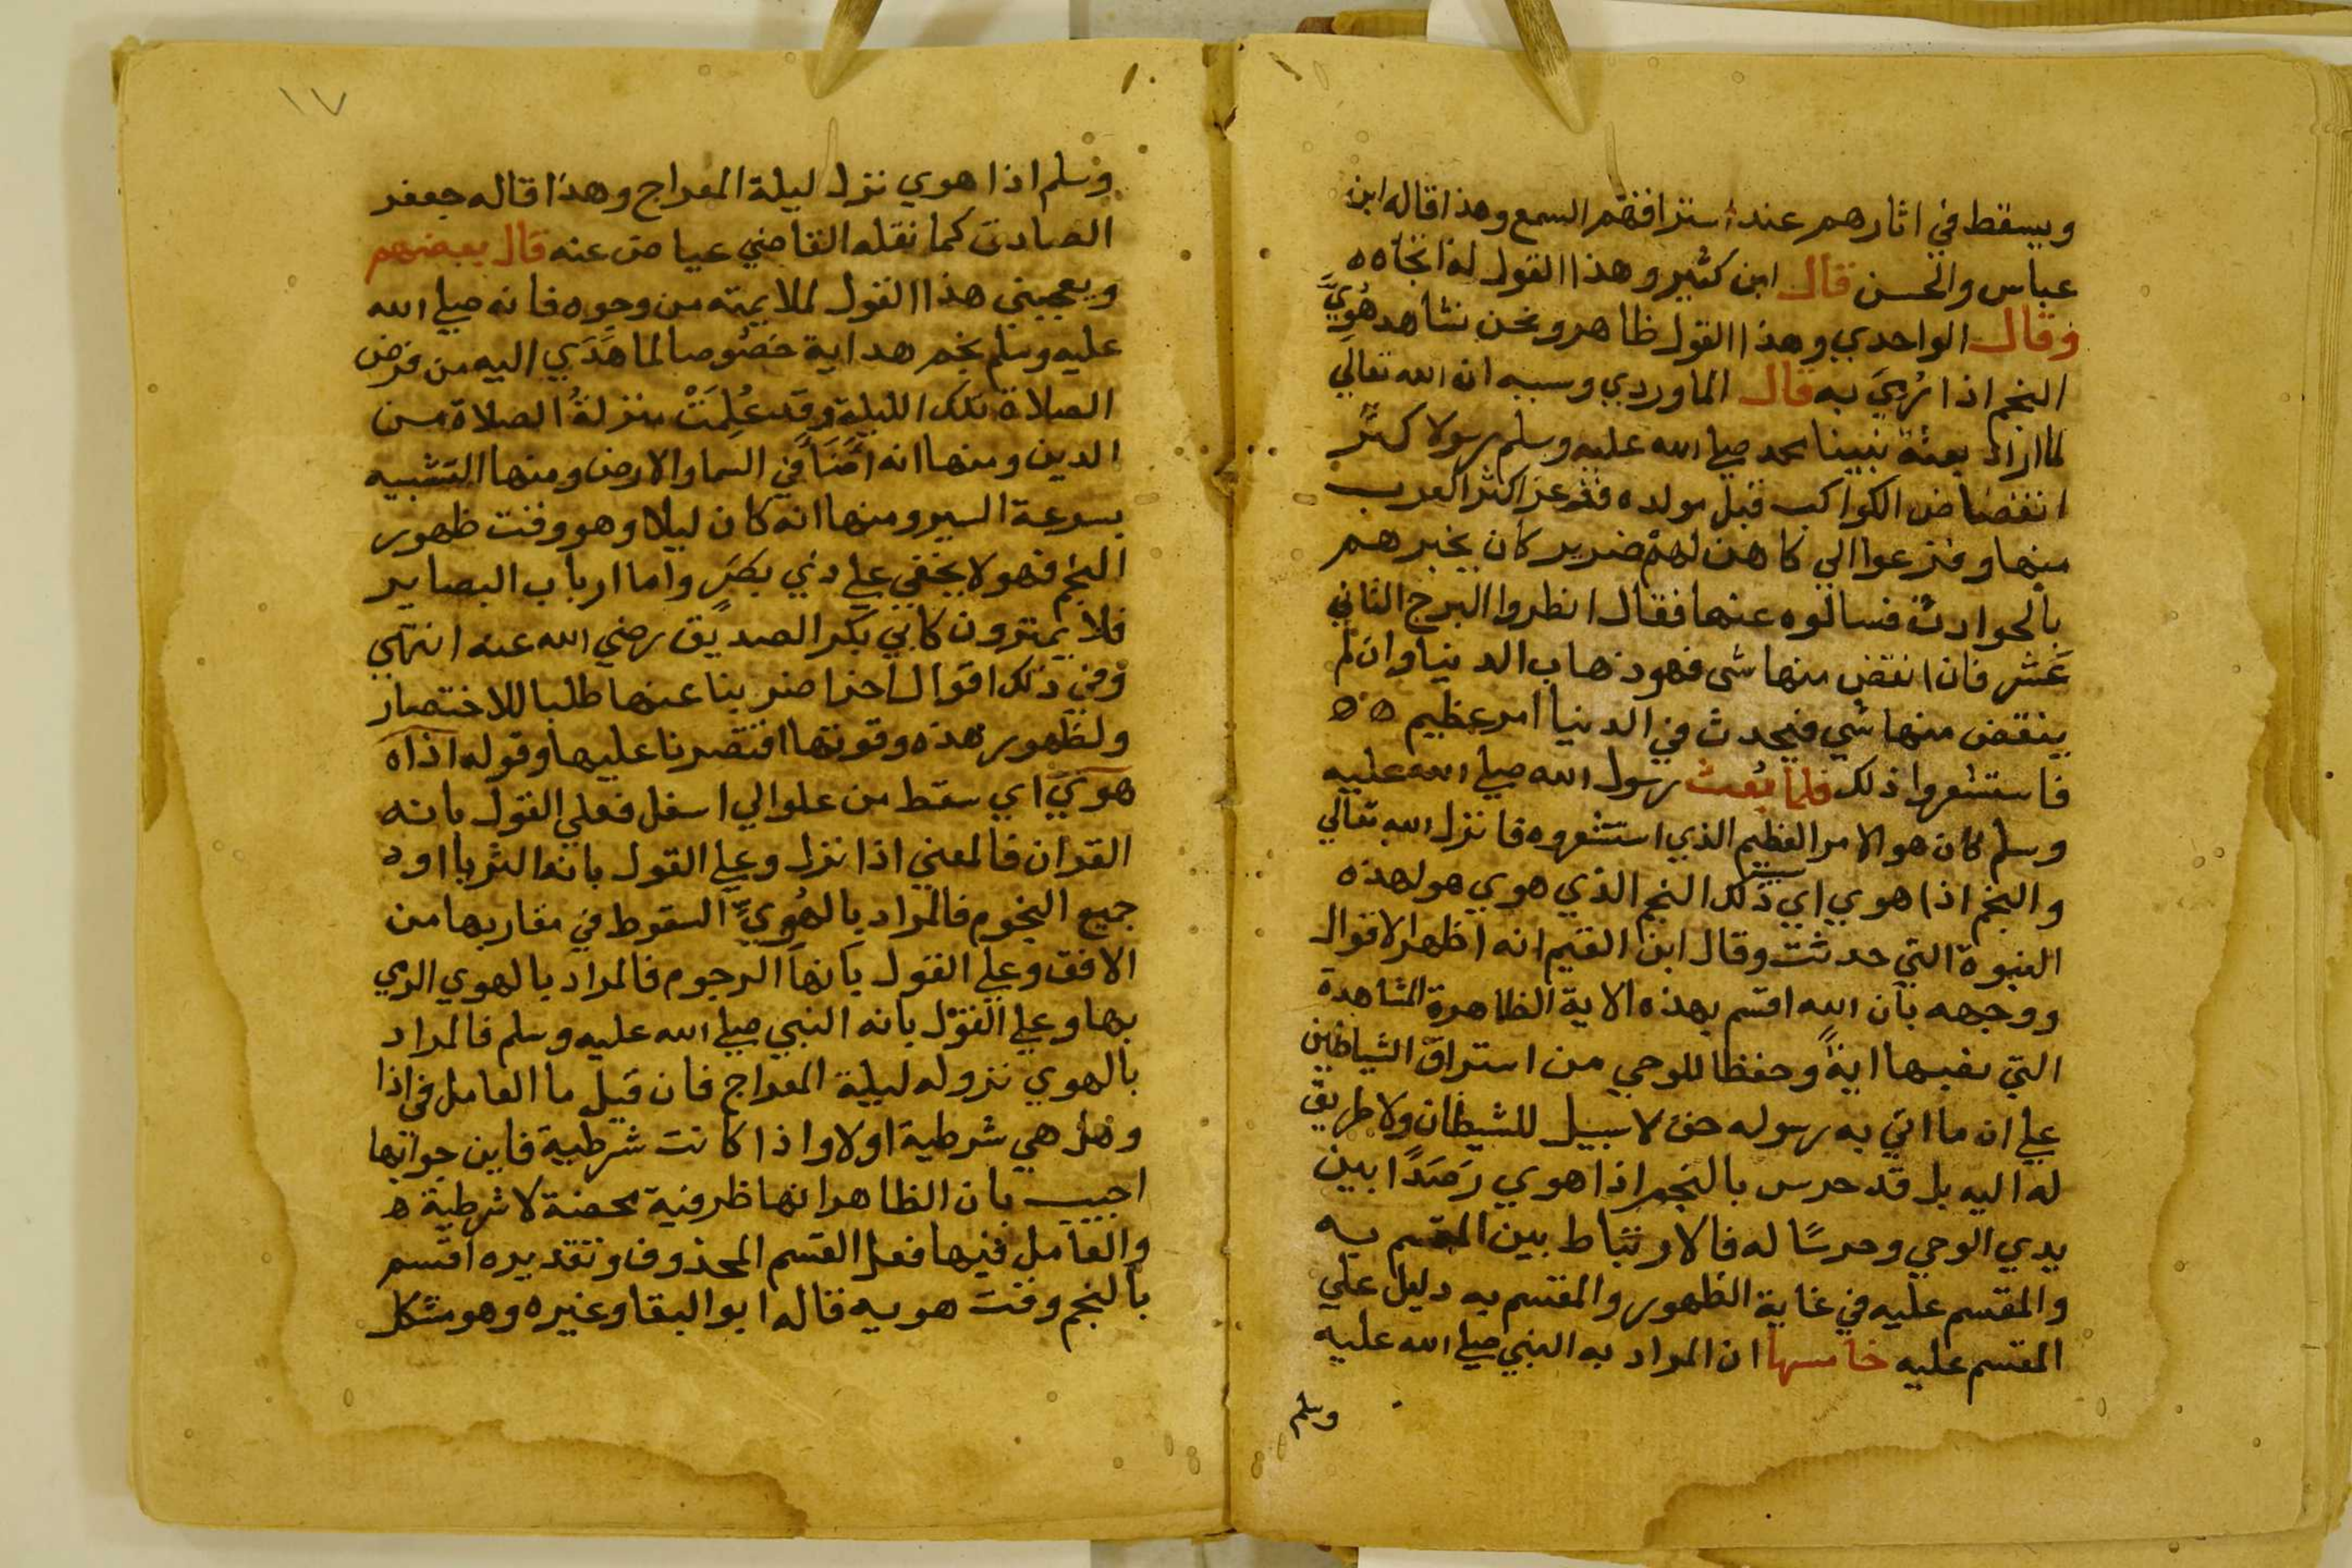 ويسقط في اثارهم عند استراقهم السمع وهذا قاله ابن
عباس والحسن قال ابن كثير وهذا القول له اتجاه ه
وقال الواحدي وهذا القول ظاهر ونحن نشاهد هُوِيَّ
النجم اذا رُمِيَ به قال الماوردي وسببه ان الله تعالي
لما اراد بعثة نبينا محمد صلي الله عليه وسلم رسولا كثر
انقضاض الكواكب قبل مولده ففزع اكثر العرب
منها وفزعوا الي كاهن لهم ضرير كان يخبرهم
بالحوادث فسالوه عنها فقال انظروا البرج الثاني
عشر فان انقض منها شي فهو ذهاب الدنيا وان لم
ينقض منها شي فيحدث في الدنيا امر عظيم ه ه
فاستشعروا ذلك فلما بُعث رسول الله صلي الله عليه
وسلم كان هو الامر العظيم الذي استشعروه فانزل الله تعالي
والنجم اذا هوي اي ذلك النجم الذي هوي هو لهذه
النبوة التي حدثت وقال ابن القيم انه اظهر الاقوال
ووجهه بان الله اقسم بهذه الاية الظاهرة المشاهدة
التي نصبها ايةً وحفظا للوحي من استراق الشياطين
علي ان ما اتي به رسوله حق لا سبيل للشيطان ولا طريق
له اليه بل قد حرس بالنجم اذا هوي رَصَدًا بين
يدي الوحي وحرسًا له فالارتباط بين المقسم به
والمقسم عليه في غاية الظهور والمقسم به دليل علي
المقسم عليه خامسها ان المراد به النبي صلي الله عليه
وسلم
١٧
وسلم اذا هوي نزل ليلة المعراج وهذا قاله جعفر
الصادق كما نقله القاضي عياض عنه قال بعضهم
ويعجبني هذا القول لملايمته من وجوه فانه صلي الله
عليه وسلم نجم هداية خصُوصا لما هُدَي اليه من فرض
الصلاة تلك الليلة وقد عُلِمَتْ منزلةُ الصلاة من
الدين ومنها انه اضَّا في السما والارض ومنها التشبيه
بسرعة السير ومنها انه كان ليلا وهو وقت ظهور
النجم فهو لا يخفي علي ذي بصَرٍ واما ارباب البصاير
فلا يمترون كابي بكر الصديق رضي الله عنه انتهي
وفي ذلك اقوال اخر اضربنا عنها طلبا للاختصار
ولظهور هذه وقوتها اقتصرنا عليها وقوله اذا ه
هوي اي سقط من علو الي اسفل فعلي القول بانه
القران فالمعني اذا نزل وعلي القول بانه الثريا او ه
جميع النجوم فالمراد بالهُوِيِّ السقوط في مغاربها من
الافق وعلي القول بانها الرجوم فالمراد بالهوي الرمي
بها وعلي القول بانه النبي صلي الله عليه وسلم فالمراد
بالهوي نزوله ليلة المعراج فان قيل ما العامل في اذا
وهل هي شرطية اولا واذا كانت شرطية فاين جوابها
اجيب بان الظاهر انها ظرفية محضة لا شرطية ه
والعامل فيها فعل القسم المحذوف وتقديره اقسم
بالنجم وقت هويه قاله ابو البقا وغيره وهو مشكل